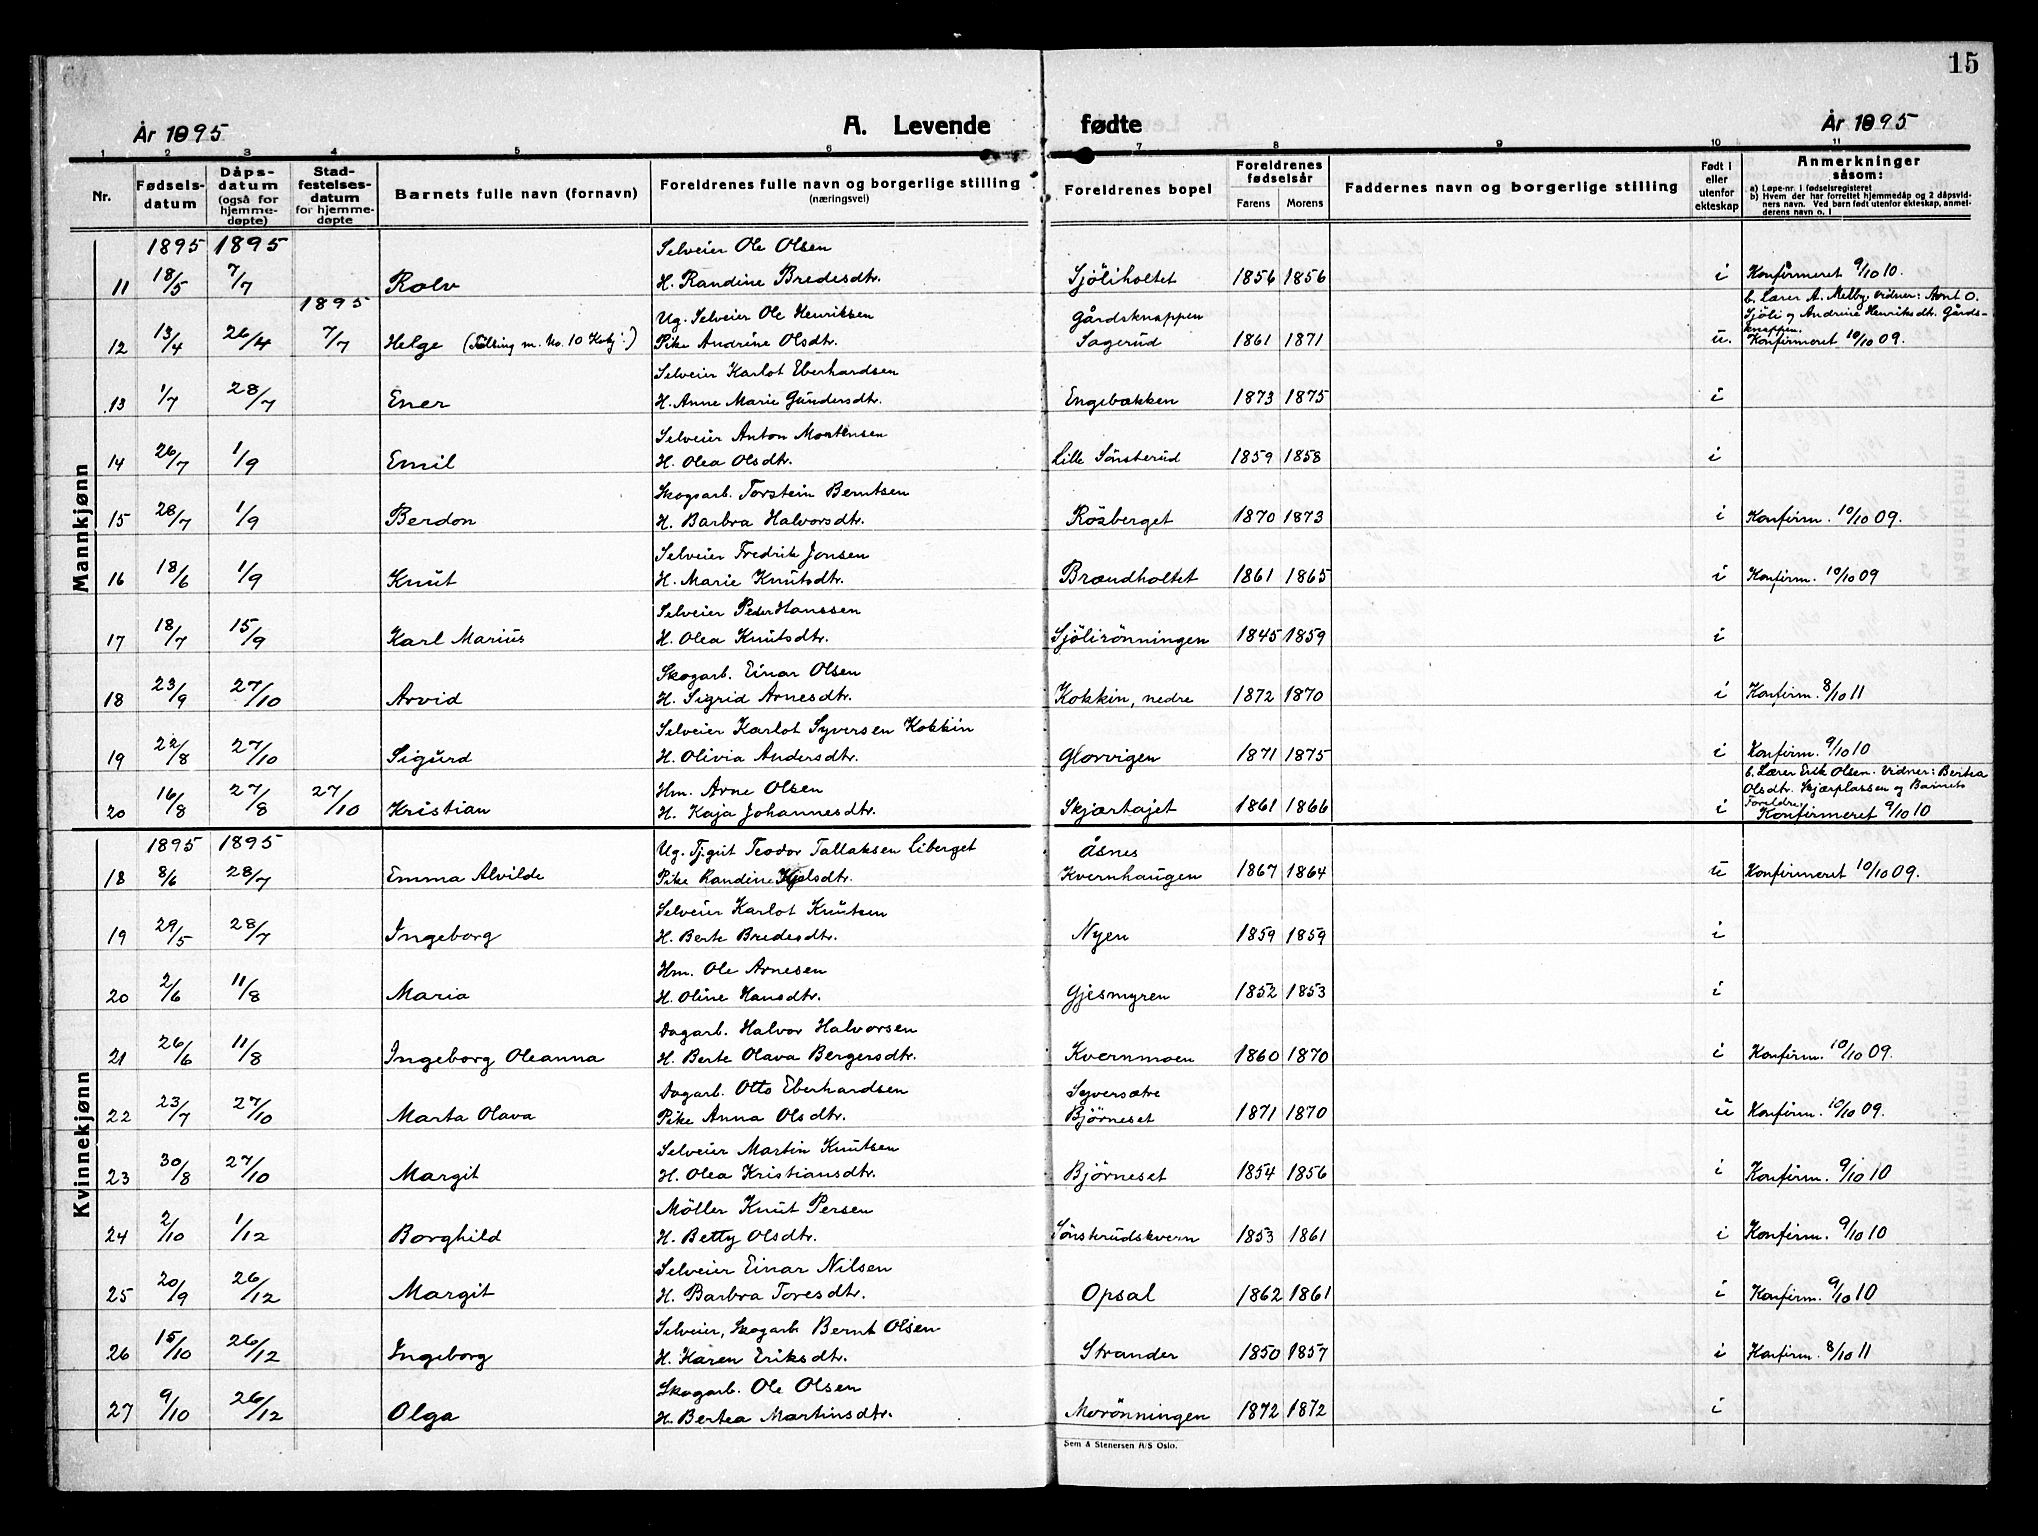 15
År 1895
A. Levende
fødte
År 1895
1 2 3 4 5 6 7 8 9 10 11
Nr.
Fødsels-
datum
Dåps-
datum
(også for
hjemme-
døpte)
Stad-
festelses-
datum
for hjemme-
døpte
Barnets fulle navn (fornavn)
Foreldrenes fulle navn og borgerlige stilling
(næringsvei)
Foreldrenes bopel
Foreldrenes
fødselsår
Farens Morens
Faddernes navn og borgerlige stilling
Født i
eller
utenfor
ekteskap
Anmerkninger
såsom:
a) Løpe-nr. i fødselsregisteret
b) Hvem der har forrettet hjemmedåp og 2 dåpsvid-
ners navn. Ved barn født utenfor ekteskap, anmel-
derens navn o. l
Mannkjønn
1895 1895 Selveier Ole Olsen
11 18/5 7/7 Rolv H. Randine Bredesdtr. Sjöliholtet 1856 1856 i Konfirmeret 9/10 10.
1895
b. Lærer A. Melby. Vidner: Arnt O.
Sjöli og Andrine Henriksdt. Gårds-
knappen.
Ug. Selveier Ole Henriksen Gårdsknappen
12 13/4 26/4 7/7 Helge (Tvilling m. No. 10 Kvkj.) Pike Andrine Olsdtr. Sagerud 1861 1871 u. Konfirmeret 10/10 09.
Selveier Karlot Eberhardsen
13 1/7 28/7 Ener H. Anne Marie Gundersdtr. Engebakken 1873 1875 i
Selveier Anton Mortensen
14 26/7 1/9 Emil H. Olea Olsdtr. Lille Sönsterud 1859 1858 i
Skogsarb. Torstein Berntsen
15 28/7 1/9 Berdon H. Barbra Halvorsdtr. Rösberget 1870 1873 i Konfirm. 10/10 09.
Selveier Fredrik Jonsen
16 18/6 1/9 Knut H. Marie Knutsdtr. Brændholtet 1861 1865 i Konfirm. 10/10 09
Selveier Peder Hanssen
17 18/7 15/9 Karl Marius H. Olea Knutsdtr. Sjölirönningen 1845 1859 i
Skogarb. Einar Olsen
18 23/9 27/10 Arvid H. Sigrid Arnesdtr. Kokkin, nedre 1872 1870 i Konfirm. 8/10 11
Selveier Karlot Syversen Kokkin
19 22/8 27/10 Sigurd H. Olivia Andersdtr. Glorvigen 1871 1875 i Konfirm. 9/10 10
b. Lærer Erik Olsen. Vidner: Bertea
Olsdtr. Skjærplassen og Barnets
Foreldre.
Hm. Arne Olsen
20 16/8 27/8 27/10 Kristian H. Kaja Johannesdtr. Skjærtajet 1861 1866 i Konfirmeret 9/10 10
Kvinnekjønn
1895 1895 Ug. Tj.gut Teodor Tallaksen Liberget Åsnes
18 8/6 28/7 Emma Alvilde Pike Randine Kjelsdtr. Kvernhaugen 1867 1864 u Konfirmeret 10/10 09.
Selveier Karlot Knutsen
19 29/5 28/7 Ingeborg H. Berte Bredesdtr. Nyen 1859 1859 i
Hm. Ole Arnesen
20 2/6 11/8 Maria H. Oline Hansdtr. Gjesmyren 1852 1853 i
Dagarb. Halvor Halvorsen
21 26/6 11/8 Ingeborg Oleanna H. Berte Olava Bergersdtr. Kvernmoen 1860 1870 i Konfirm. 10/10 09.
Dagarb. Otto Eberhardsen Syversætre
22 23/7 27/10 Marta Olava Pike Anna Olsdtr. Björneset 1871 1870 u Konfirm. 10/10 09.
Selveier Martin Knutsen
23 30/8 27/10 Margit H. Olea Kristiansdtr. Björneset 1854 1856 i Konfirm. 9/10 10
Möller Knut Persen
24 2/10 1/12 Borghild H. Betty Olsdtr. Sönsterudskvern 1853 1861 i Konfirm. 9/10 10
Selveier Einar Nilsen
25 20/9 26/12 Margit H. Barbra Toresdtr. Opsal 1862 1861 i Konfirm. 9/10 10
Selveier, Skogarb. Bernt Olsen
26 15/10 26/12 Ingeborg H. Karen Eriksdtr. Strander 1850 1857 i Konfirm. 8/10 11
Skogarb. Ole Olsen
27 9/10 26/12 Olga H. Bertea Martinsdtr. Morönningen 1872 1872 i
Sem & Stenersen A/S Oslo.